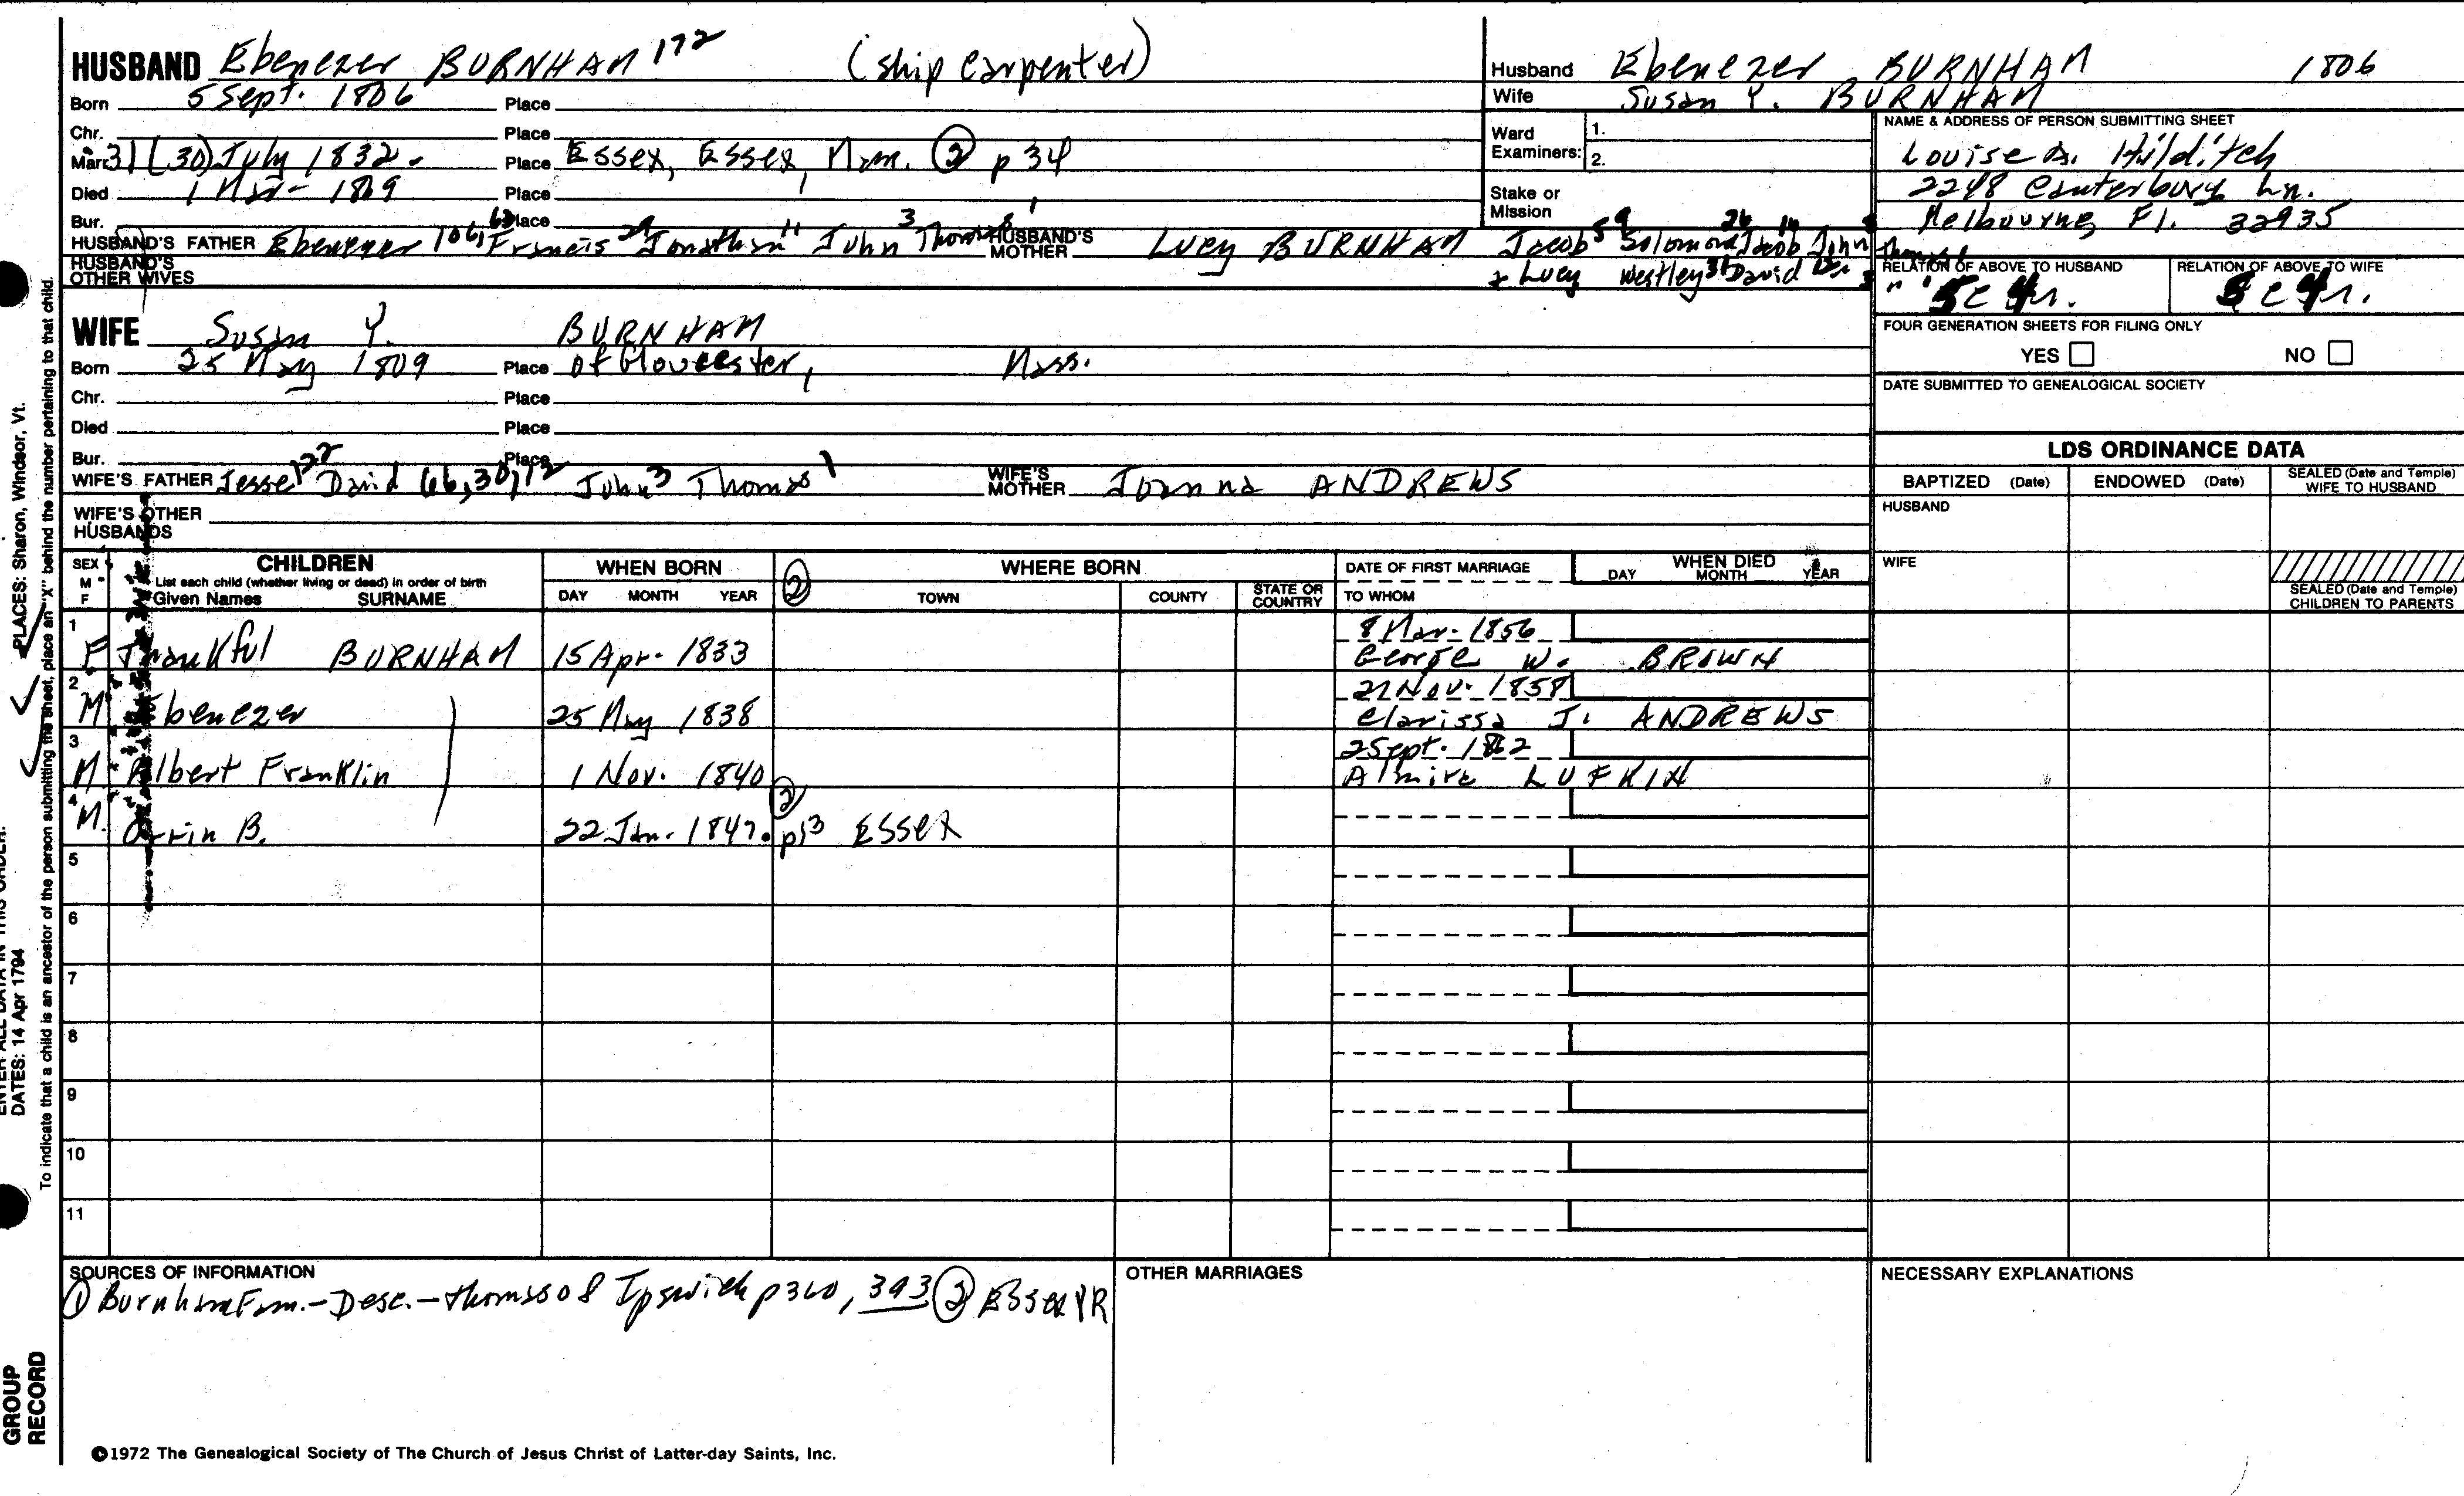 HUSBAND Ebenezer BURNHAM 172 (ship carpenter)
Born 5 Sept. 1806 Place
Chr. Place
Marr. 31 (30) July 1832 Place Essex, Essex, Mass. (2) p 34
Died 1 Mar 1869 Place
Bur. Place
HUSBAND'S FATHER Ebenezer 106, 62 Francis 29 Jonathan 11 John 3 Thomas 1 HUSBAND'S MOTHER Lucy BURNHAM Jacob 59 Solomon 26 Jacob 10 John Thomas
HUSBAND'S OTHER WIVES + Lucy Westley 31 David
WIFE Susan Y. BURNHAM
Born 25 May 1809 Place of Gloucester, Mass.
Chr. Place
Died Place
Bur. Place
WIFE'S FATHER Jesse 122 David 66, 30, 12 John 3 Thomas 1 WIFE'S MOTHER Joanna ANDREWS
WIFE'S OTHER HUSBANDS
Husband Ebenezer BURNHAM 1806
Wife Susan Y. BURNHAM
Ward Examiners: 1.
2.
Stake or Mission
NAME & ADDRESS OF PERSON SUBMITTING SHEET
Louise A. Hilditch
2248 Canterbury Ln.
Melbourne, Fl. 32935
RELATION OF ABOVE TO HUSBAND RELATION OF ABOVE TO WIFE
5c 4r. c 4r.
FOUR GENERATION SHEETS FOR FILING ONLY
YES NO
DATE SUBMITTED TO GENEALOGICAL SOCIETY
LDS ORDINANCE DATA
BAPTIZED (Date) ENDOWED (Date) SEALED (Date and Temple) WIFE TO HUSBAND
HUSBAND
WIFE
SEALED (Date and Temple) CHILDREN TO PARENTS
SEX M F CHILDREN WHEN BORN (2) WHERE BORN DATE OF FIRST MARRIAGE WHEN DIED
List each child (whether living or dead) in order of birth
Given Names SURNAME DAY MONTH YEAR TOWN COUNTY STATE OR COUNTRY TO WHOM DAY MONTH YEAR
1 8 Mar. 1856
F Thankful BURNHAM 15 Apr. 1833 George W. BROWN
2 21 Nov. 1858
M Ebenezer 25 May 1838 Clarissa J. ANDREWS
3 2 Sept. 1862
M Albert Franklin 1 Nov. 1840 Almira LUFKIN
4
M. Orrin B. 22 Jan. 1847. (2) p13 Essex
5
6
7
8
9
10
11
SOURCES OF INFORMATION
(1) Burnham Fam.-Desc.-Thomas of Ipswich p 360, 393 (2) Essex VR
OTHER MARRIAGES
NECESSARY EXPLANATIONS
©1972 The Genealogical Society of The Church of Jesus Christ of Latter-day Saints, Inc.
PLACES: Sharon, Windsor, Vt.
DATES: 14 Apr 1794
To indicate that a child is an ancestor of the person submitting the sheet, place an "X" behind the number pertaining to that child.
GROUP
RECORD